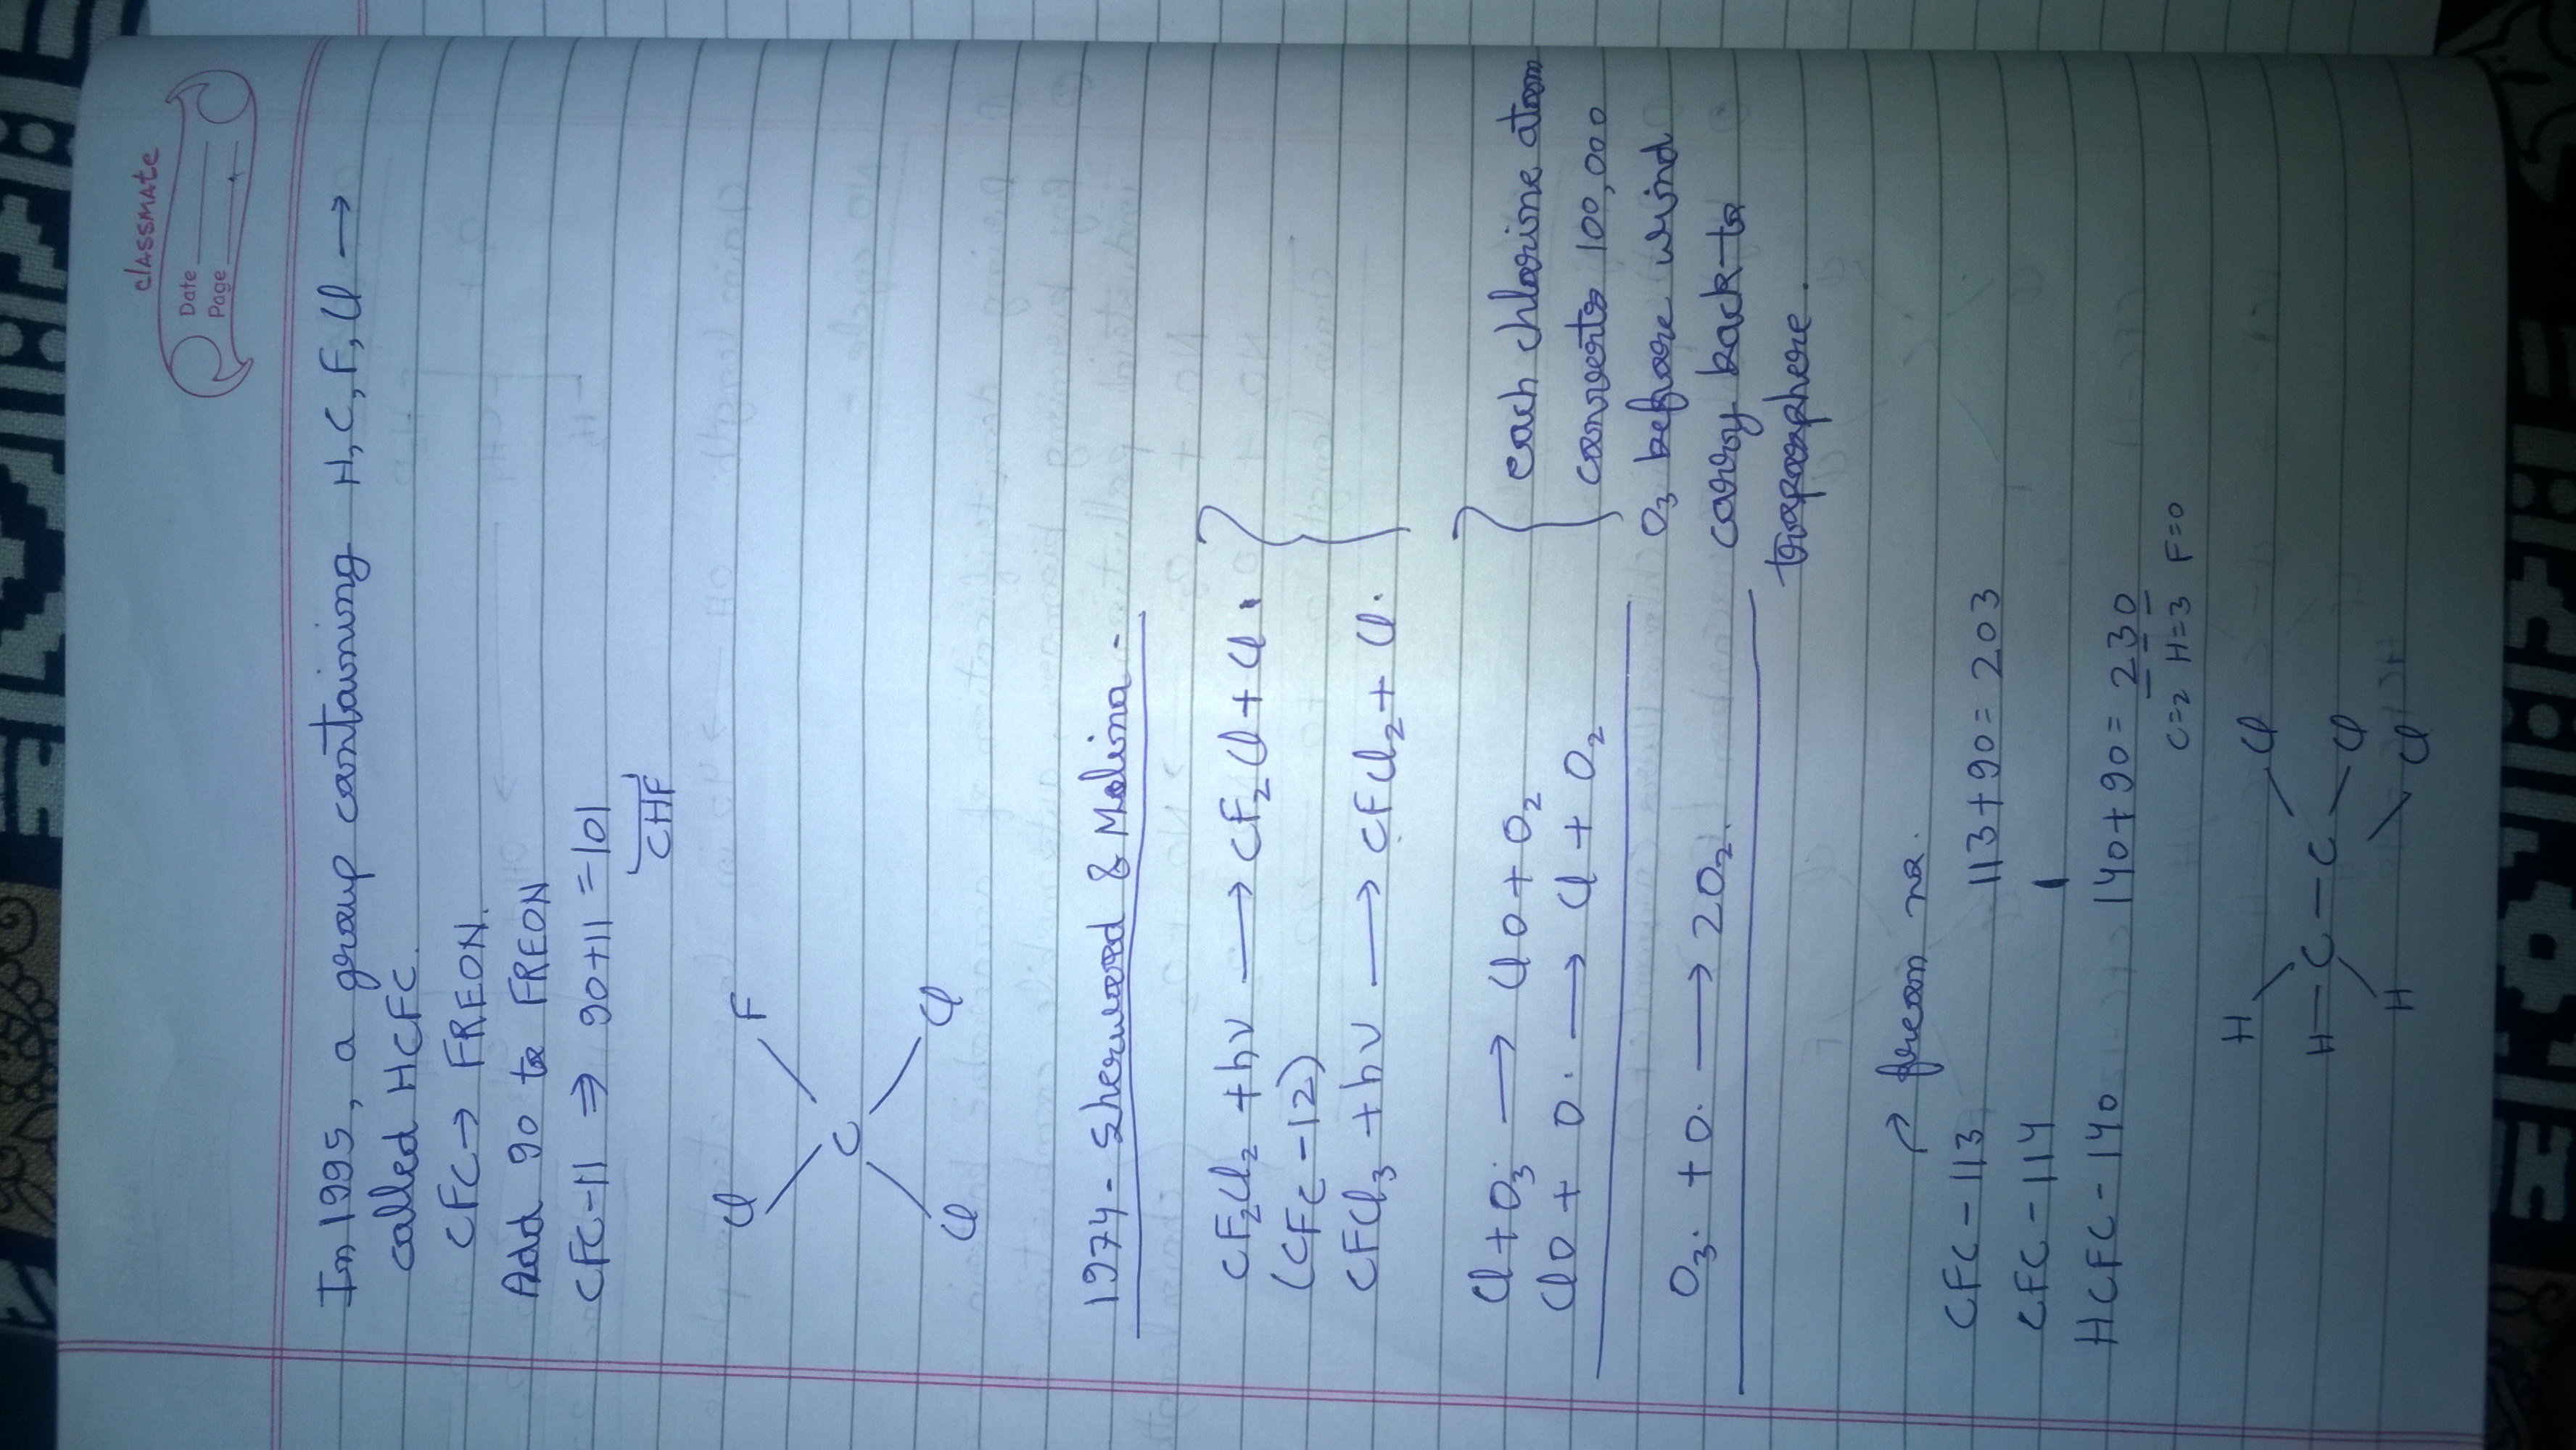 classmate
Date
Page
In 1995, a group containing H, C, F, Cl →
called HCFC.
CFC → FREON.
Add 90 to FREON
CFC-11 ⇒ 90+11 = 101
CHF
Cl F
C
Cl Cl
1974 - Sherwood & Molina -
CF₂Cl₂ + hν → CF₂Cl + Cl.
(CFC-12)
CFCl₃ + hν → CFCl₂ + Cl.
Cl + O₃ → ClO + O₂
ClO + O. → Cl + O₂
O₃. + O. → 2O₂.
each chlorine atom
converts 100,000
O₃ before wind
carry back to
troposphere.
freon no.
CFC - 113 113+90 = 203
CFC - 114
HCFC - 140 140+90 = 230
C=2 H=3 F=0
H Cl
H—C—C Cl
H Cl